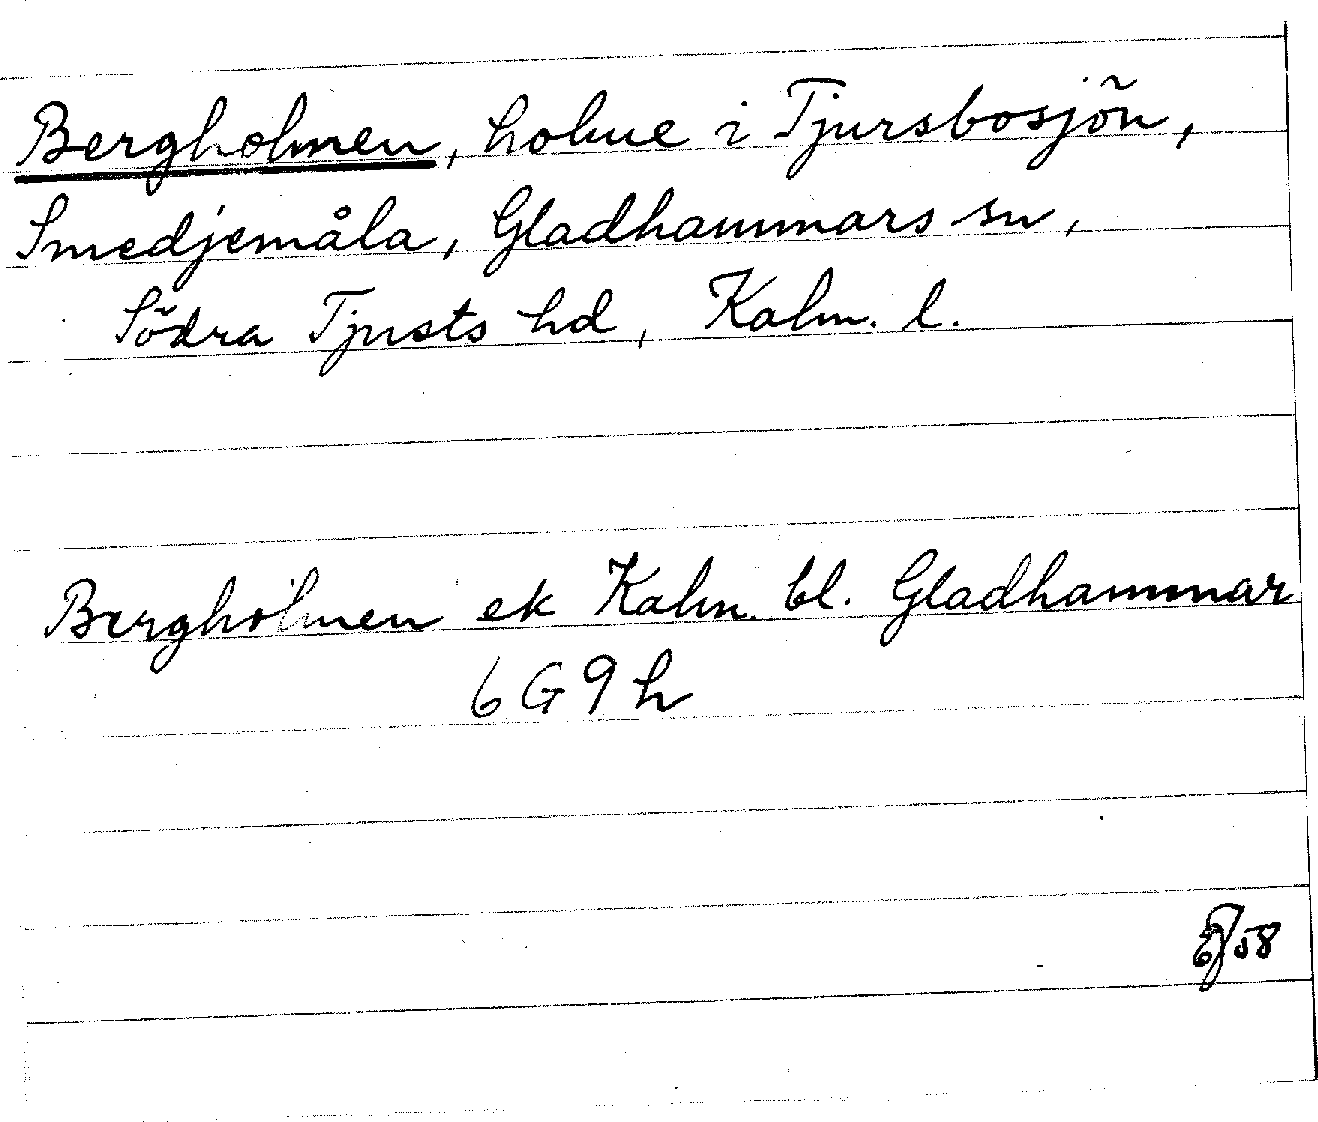 Bergholmen, holme i Tjursbosjön,
Smedjemåla, Gladhammars sn,
Södra Tjusts hd, Kalm. l.
Bergholmen ek Kalm. bl. Gladhammar
6G9h
58